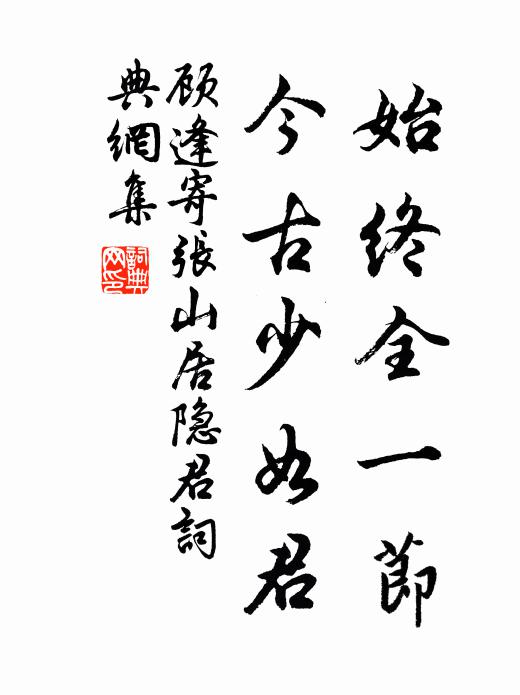 始终全一節
今古少如君
顾逢寄張山居隐君詞
典網集
詞典
网印